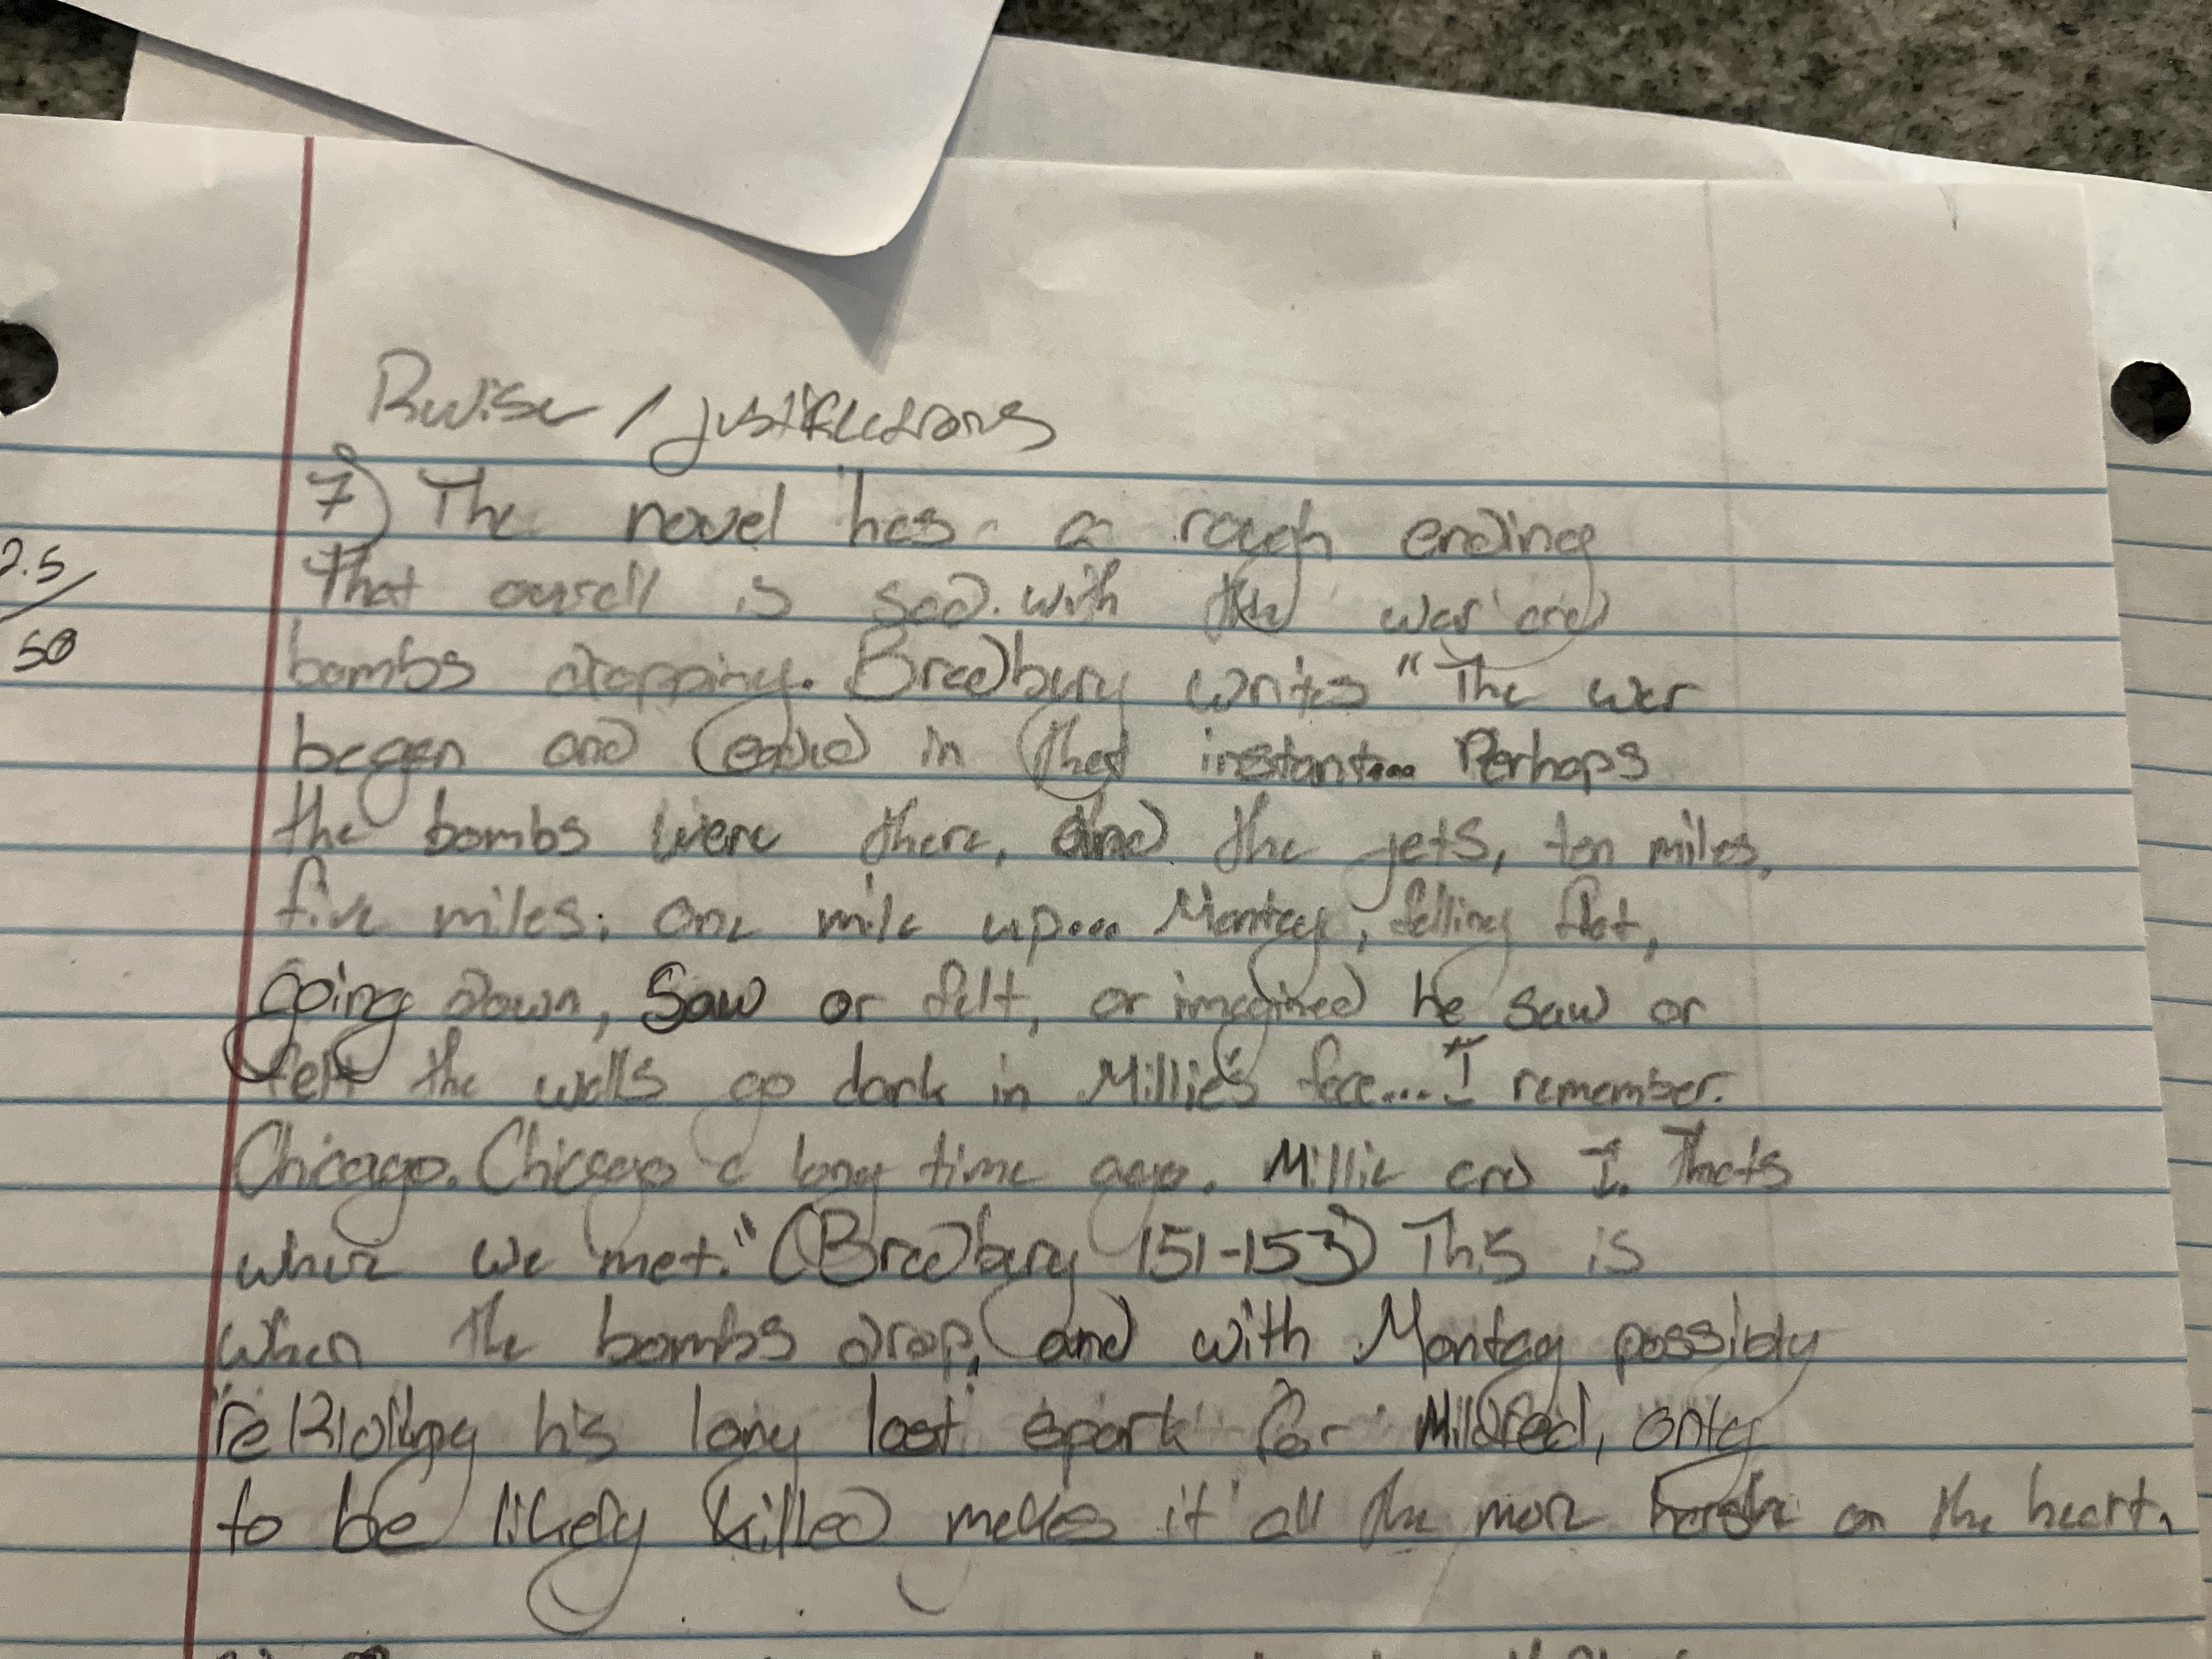 Revise / justifications
7) The novel has a rough ending
That overall is sad. with the war and
bombs dropping. Bradbury writes "The war
began and ended in that instant... Perhaps
the bombs were there, and the jets, ten miles,
five miles; one mile up... Montag, falling flat,
going down, Saw or felt, or imagined he saw or
felt the walls go dark in Millie's face.... "I remember.
Chicago. Chicago a long time ago. Millie and I. Thats
where we met." (Bradbury 151-153) This is
when the bombs drop, and with Montag possibly
his long lost spark for Mildred, only
to be likely killed makes it all the more harsh on the heart.
.5
50